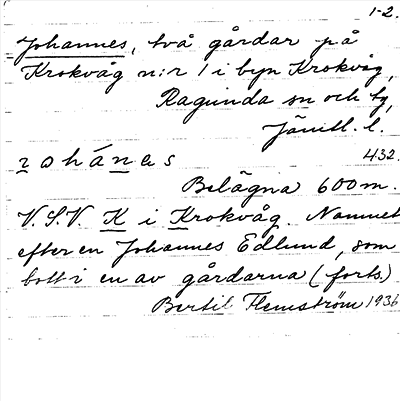 1-2.
Johannes, två gårdar på
Krokvåg n:r 1 i byn Krokvåg,
Ragunda sn och tg,
Jämtl. l.
432.
Belägna 600 m.
V.S.V. K i Krokvåg. Namnet
efter en Johannes Edlund, som
bott i en av gårdarna (forts.)
Bertil Flemström 1936